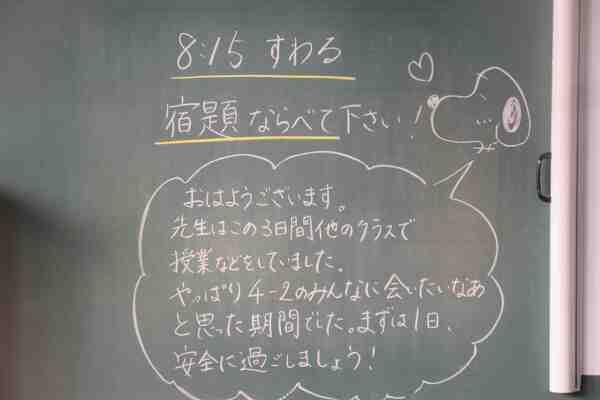 8:15 すわる
宿題ならべて下さい!
おはようございます。
先生はこの3日間他のクラスで
授業などをしていました。
やっぱり4-2のみんなに会いたいなあ
と思った期間でした。まずは1日、
安全に過ごしましょう!